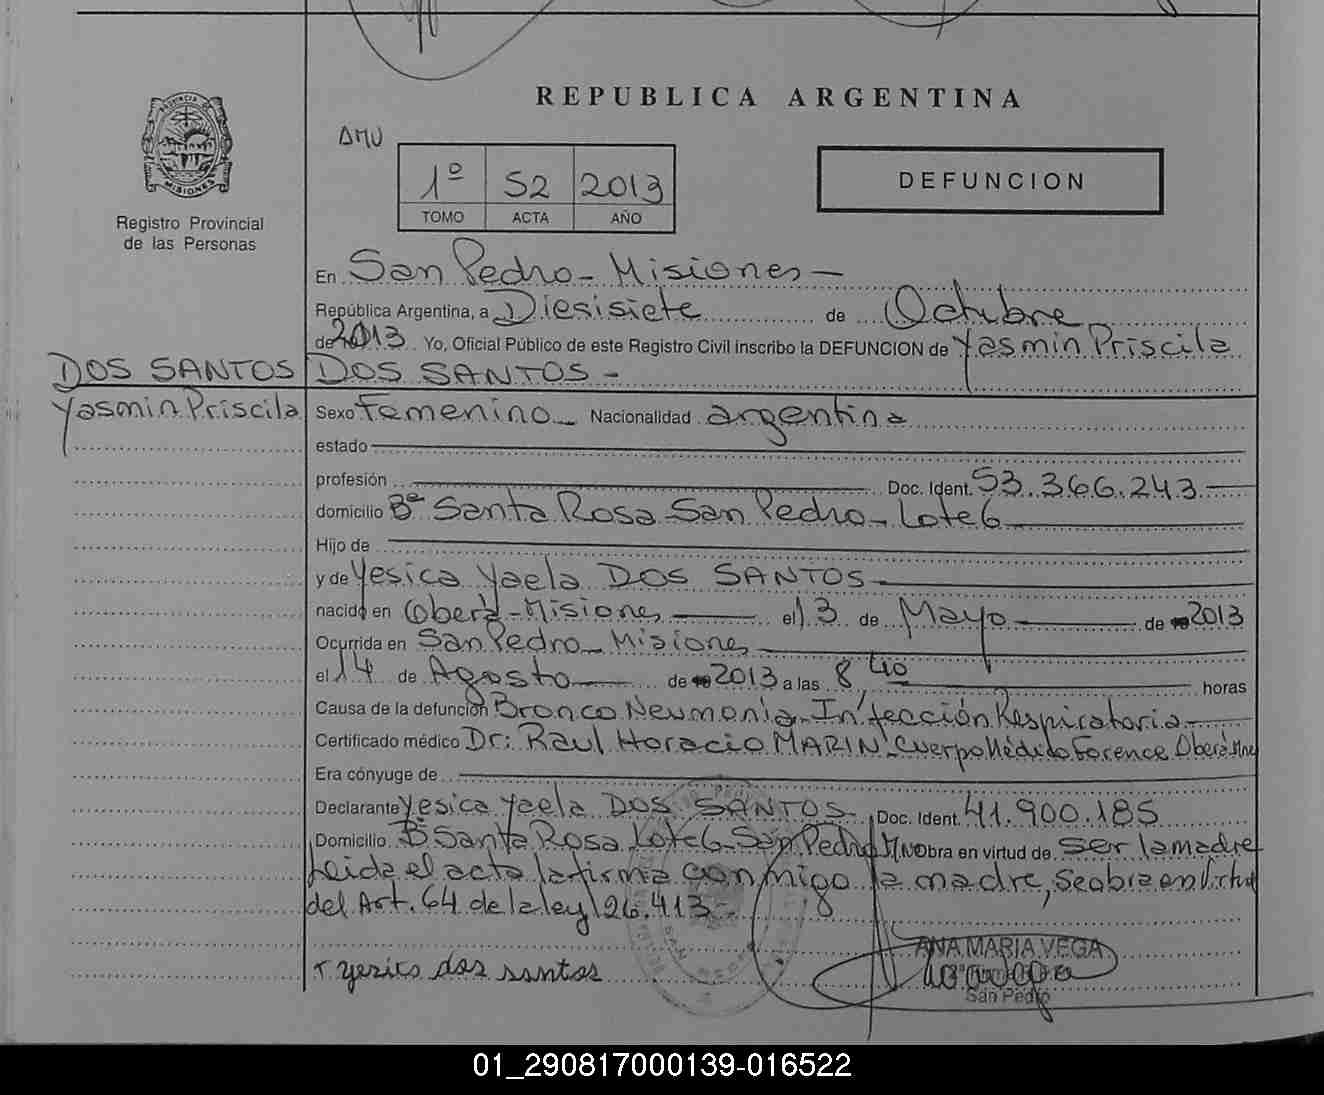 REPUBLICA ARGENTINA
PROVINCIA DE
MISIONES
Registro Provincial
de las Personas
1º S2 2013
TOMO ACTA AÑO
DEFUNCION
En San Pedro - Misiones -
República Argentina, a Diesisiete de Octubre
de 2013 Yo, Oficial Público de este Registro Civil inscribo la DEFUNCION de Yasmin Priscila
DOS SANTOS DOS SANTOS -
Yasmin Priscila Sexo Femenino Nacionalidad argentina
estado
profesión Doc. Ident. 53.366.243
domicilio Bº Santa Rosa San Pedro - Lote 6
Hijo de
y de Yesica Yaela DOS SANTOS
nacido en Oberá - Misiones el 13 de Mayo de 2013
Ocurrida en San Pedro - Misiones
el 14 de Agosto de 2013 a las 8,40 horas
Causa de la defunción Bronco Neumonia - Infección Respiratoria
Certificado médico Dr: Raul Horacio MARIN Cuerpo Médico Forence Oberá Mnes
Era cónyuge de
Declarante Yesica Yaela DOS SANTOS Doc. Ident. 41.900.185
Domicilio Bº Santa Rosa Lote 6 - San Pedro Mnes Obra en virtud de Ser la madre
Leida el acta la firma conmigo la madre, Se obra en Virtud
del Art. 64 de la ley 26.413 -
yesica dos santos
ANA MARIA VEGA
San Pedro
01_290817000139-016522